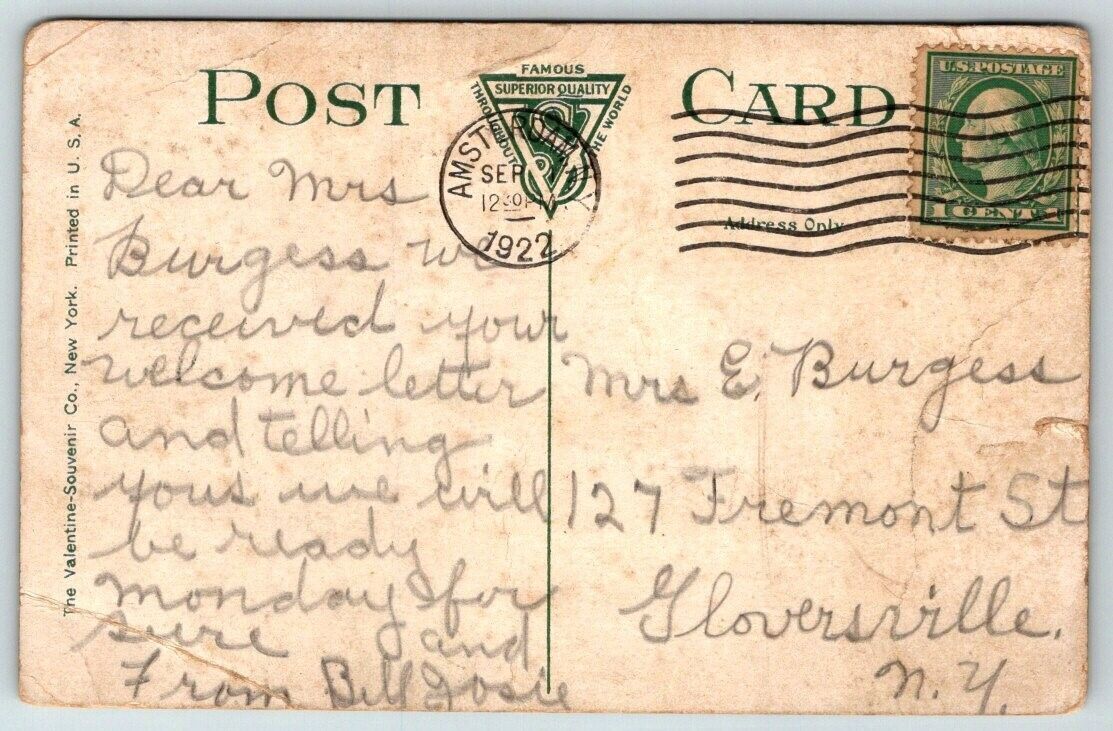 POST CARD
FAMOUS
SUPERIOR QUALITY
THROUGHOUT THE WORLD
AMSTERDAM N.Y.
SEP
12 30 PM
1922
U.S. POSTAGE
1 CENT
Address Only
The Valentine-Souvenir Co., New York. Printed in U. S. A.
Dear Mrs
Burgess we
received your
welcome letter
and telling
yous we will
be ready
Monday for
sure and
From Bill Josie
Mrs E. Burgess
127 Fremont St
Gloversville.
N.Y.